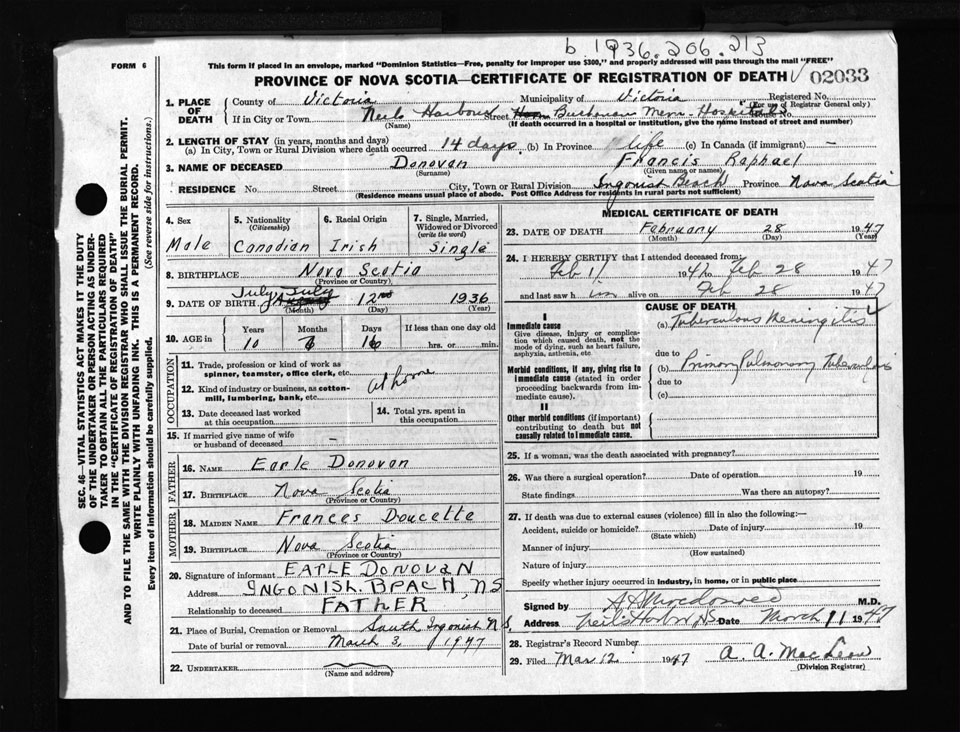 b. 1936.206.213
FORM 6
This form if placed in an envelope, marked "Dominion Statistics—Free, penalty for improper use $300," and properly addressed will pass through the mail "FREE"
PROVINCE OF NOVA SCOTIA—CERTIFICATE OF REGISTRATION OF DEATH ✓ 02033
1. PLACE OF DEATH
County of Victoria Municipality of Victoria Registered No.
(For use of Registrar General only)
If in City or Town Neils Harbour Street Buchanan Mem. Hospital House No.
(Name) (If death occurred in a hospital or institution, give the name instead of street and number)
2. LENGTH OF STAY (in years, months and days)
(a) In City, Town or Rural Division where death occurred 14 days. (b) In Province life (c) In Canada (if immigrant) —
3. NAME OF DECEASED Donovan Francis Raphael
(Surname) (Given name or names)
RESIDENCE No. Street City, Town or Rural Division Ingonish Beach Province Nova Scotia
(Residence means usual place of abode. Post Office Address for Residents in rural parts not sufficient)
4. Sex Male
5. Nationality (Citizenship) Canadian
6. Racial Origin Irish
7. Single, Married, Widowed or Divorced (write the word) Single
8. BIRTHPLACE Nova Scotia
(Province or Country)
9. DATE OF BIRTH July July 12 1936
(Month) (Day) (Year)
10. AGE in Years Months Days If less than one day old
10 16 hrs. or min.
OCCUPATION
11. Trade, profession or kind of work as spinner, teamster, office clerk, etc. at home
12. Kind of industry or business, as cotton-mill, lumbering, bank, etc.
13. Date deceased last worked at this occupation
14. Total yrs. spent in this occupation
15. If married give name of wife or husband of deceased —
FATHER
16. NAME Earle Donovan
17. BIRTHPLACE Nova Scotia
(Province or Country)
MOTHER
18. MAIDEN NAME Frances Doucette
19. BIRTHPLACE Nova Scotia
(Province or Country)
20. Signature of informant EARLE DONOVAN
Address INGONISH BEACH, NS
Relationship to deceased FATHER
21. Place of Burial, Cremation or Removal South Ingonish N.S.
Date of burial or removal March 3, 1947
22. UNDERTAKER
(Name and address)
MEDICAL CERTIFICATE OF DEATH
23. DATE OF DEATH February 28 1947
(Month) (Day) (Year)
24. I HEREBY CERTIFY that I attended deceased from:
Feb 1947 to Feb 28 1947
and last saw him alive on Feb 28 1947
CAUSE OF DEATH
I
Immediate cause
Give disease, injury or complication which caused death, not the mode of dying, such as heart failure, asphyxia, asthenia, etc.
(a) Tuberculous Meningitis
due to
Morbid conditions, if any, giving rise to immediate cause (stated in order proceeding backwards from immediate cause).
(b) Primary Pulmonary Tuberculosis
due to
(c)
II
Other morbid conditions (if important) contributing to death but not causally related to immediate cause.
25. If a woman, was the death associated with pregnancy?
26. Was there a surgical operation? Date of operation 19
State findings Was there an autopsy?
27. If death was due to external causes (violence) fill in also the following:—
Accident, suicide or homicide? Date of injury 19
(State which)
Manner of injury
(How sustained)
Nature of injury
Specify whether injury occurred in industry, in home, or in public place
Signed by M.D.
Address Neil's Harbor, N.S. Date March 11 1947
28. Registrar's Record Number
29. Filed Mar 12 1947 A. A. MacLeod
(Division Registrar)
SEC. 46—VITAL STATISTICS ACT MAKES IT THE DUTY
OF THE UNDERTAKER OR PERSON ACTING AS UNDER-
TAKER TO OBTAIN ALL THE PARTICULARS REQUIRED
IN THE "CERTIFICATE OF REGISTRATION OF DEATH"
AND TO FILE THE SAME WITH THE DIVISION REGISTRAR WHO SHALL ISSUE THE BURIAL PERMIT.
WRITE PLAINLY WITH UNFADING INK. THIS IS A PERMANENT RECORD.
Every item of information should be carefully supplied. (See reverse side for instructions.)